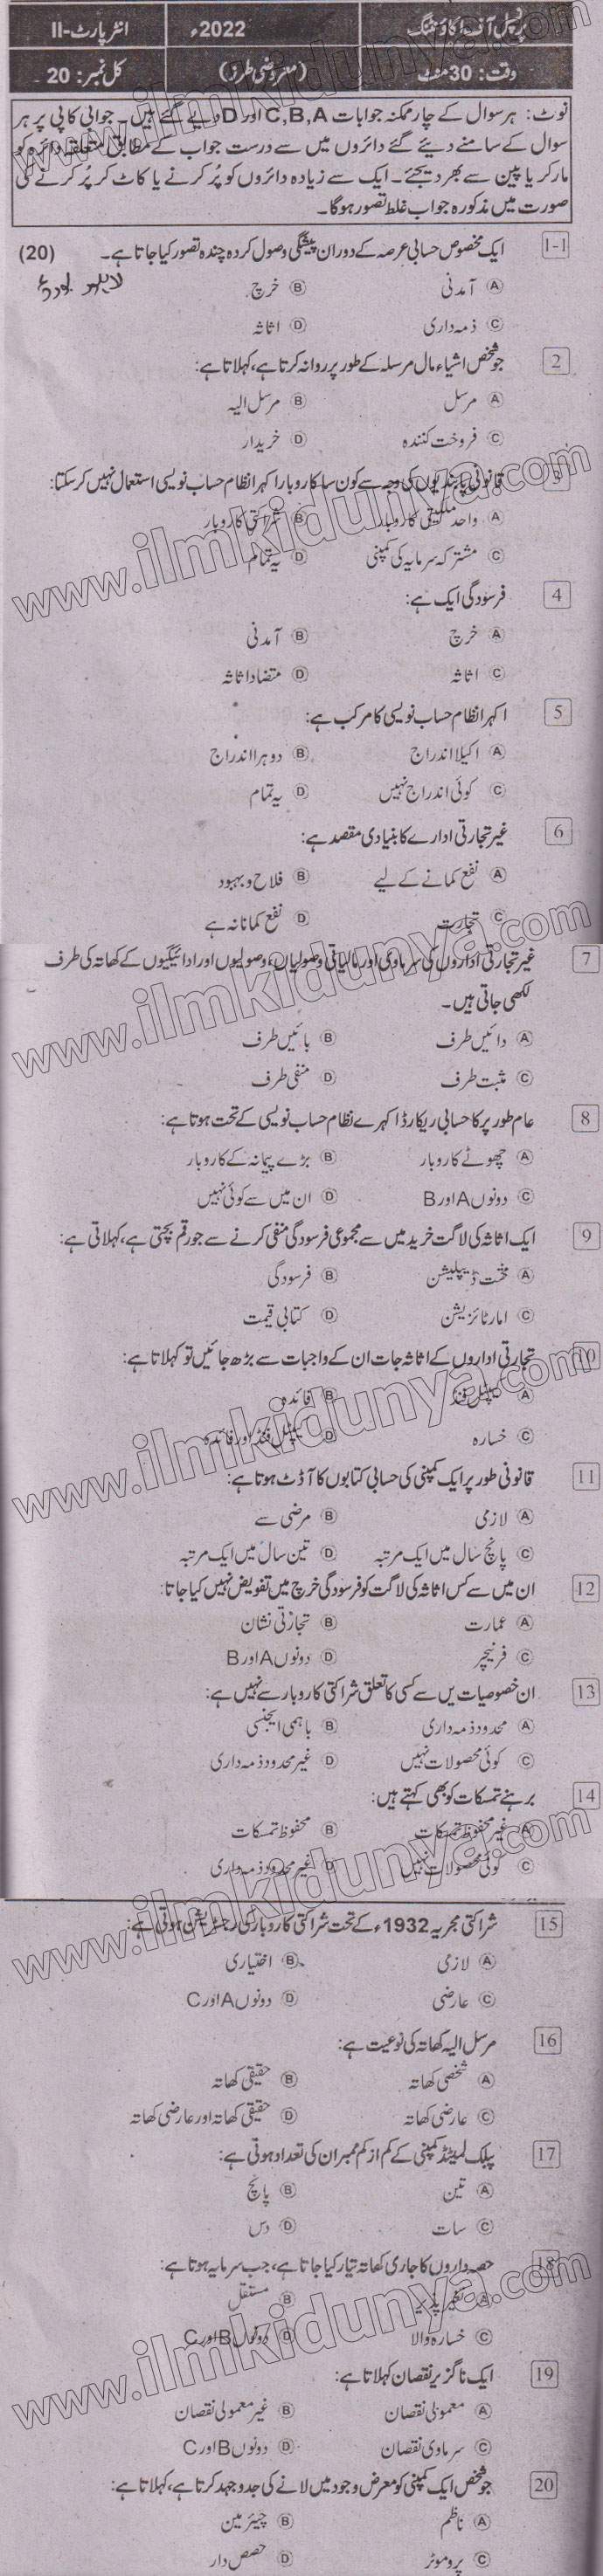 پرنسپل آف اکاؤنٹنگ 2022ء انٹر پارٹ-II
وقت: 30 منٹ (معروضی طرز) کل نمبر: 20
نوٹ: ہر سوال کے چار ممکنہ جوابات C,B,A اور D دیے گئے ہیں۔ جوابی کاپی پر ہر
سوال کے سامنے دیئے گئے دائروں میں سے درست جواب کے مطابق متعلقہ دائرہ کو
مارکر یا پین سے بھر دیجئے۔ ایک سے زیادہ دائروں کو پُر کرنے یا کاٹ کر پُر کرنے کی
صورت میں مذکورہ جواب غلط تصور ہوگا۔
1-1 ایک مخصوص حسابی عرصہ کے دوران پیشگی وصول کردہ چندہ تصور کیا جاتا ہے۔ (20)
A آمدنی B خرچ لاہور بورڈ
C ذمہ داری D اثاثہ
2 جو شخص اشیاء مال مرسلہ کے طور پر روانہ کرتا ہے، کہلاتا ہے:
A مرسل B مرسل الیہ
C فروخت کنندہ D خریدار
3 قانونی پابندیوں کی وجہ سے کون سا کاروبار اکہرا نظام حساب نویسی استعمال نہیں کرسکتا:
A واحد ملکیتی کاروبار B شراکتی کاروبار
C مشترکہ سرمایہ کی کمپنی D یہ تمام
4 فرسودگی ایک ہے:
A خرچ B آمدنی
C اثاثہ D متضاد اثاثہ
5 اکہرا نظام حساب نویسی کا مرکب ہے:
A اکیلا اندراج B دوہرا اندراج
C کوئی اندراج نہیں D یہ تمام
6 غیر تجارتی ادارے کا بنیادی مقصد ہے:
A نفع کمانے کے لیے B فلاح و بہبود
C تجارت D نفع کمانا نہ ہے
7 غیر تجارتی اداروں کی سرماوی اور مالیاتی وصولیاں، وصولیوں اور ادائیگیوں کے کھاتہ کی طرف
لکھی جاتی ہیں۔
A دائیں طرف B بائیں طرف
C مثبت طرف D منفی طرف
8 عام طور پر کا حسابی ریکارڈ اکہرے نظام حساب نویسی کے تحت ہوتا ہے:
A چھوٹے کاروبار B بڑے پیمانہ کے کاروبار
C دونوں A اور B D ان میں سے کوئی نہیں
9 ایک اثاثہ کی لاگت خرید میں سے مجموعی فرسودگی منفی کرنے سے جو رقم بچتی ہے، کہلاتی ہے:
A مخت ڈیپلیشن B فرسودگی
C امارٹائزیشن D کتابی قیمت
10 تجارتی اداروں کے اثاثہ جات ان کے واجبات سے بڑھ جائیں تو کہلاتا ہے:
A کیپٹل فنڈ B فائدہ
C خسارہ D کیپٹل فنڈ اور فائدہ
11 قانونی طور پر ایک کمپنی کی حسابی کتابوں کا آڈٹ ہوتا ہے:
A لازمی B مرضی سے
C پانچ سال میں ایک مرتبہ D تین سال میں ایک مرتبہ
12 ان میں سے کس اثاثہ کی لاگت کو فرسودگی خرچ میں تفویض نہیں کیا جاتا:
A عمارت B تجارتی نشان
C فرنیچر D دونوں A اور B
13 ان خصوصیات یں سے کسی کا تعلق شراکتی کاروبار سے نہیں ہے:
A محدود ذمہ داری B باہمی ایجنسی
C کوئی محصولات نہیں D غیر محدود ذمہ داری
14 برہنے تمسکات کو بھی کہتے ہیں:
A غیر محفوظ تمسکات B محفوظ تمسکات
C کوئی محصولات نہیں D غیر محدود ذمہ داری
15 شراکتی مجریہ 1932ء کے تحت شراکتی کاروبار کی رجسٹریشن ہوتی ہے:
A لازمی B اختیاری
C عارضی D دونوں A اور C
16 مرسل الیہ کھاتہ کی نوعیت ہے:
A شخصی کھاتہ B حقیقی کھاتہ
C عارضی کھاتہ D حقیقی کھاتہ اور عارضی کھاتہ
17 پبلک لمیٹڈ کمپنی کے کم از کم ممبران کی تعداد ہوتی ہے:
A تین B پانچ
C سات D دس
18 حصہ داروں کا جاری کھاتہ تیار کیا جاتا ہے، جب سرمایہ ہوتا ہے:
A تغیر پذیر B مستقل
C خسارہ والا D دونوں B اور C
19 ایک ناگزیر نقصان کہلاتا ہے:
A معمولی نقصان B غیر معمولی نقصان
C سرماوی نقصان D دونوں B اور C
20 جو شخص ایک کمپنی کو معرض وجود میں لانے کی جدوجہد کرتا ہے، کہلاتا ہے:
A ناظم B چیئرمین
C پروموٹر D حصص دار
www.ilmkidunya.com